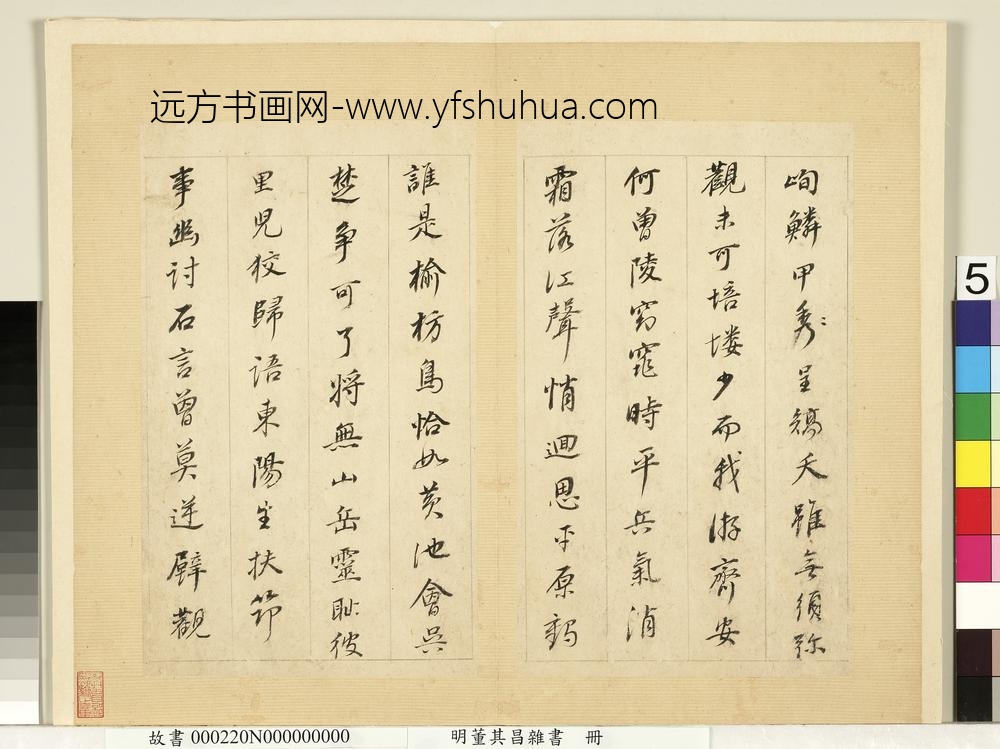 远方书画网-www.yfshuhua.com
峋鱗甲秀〻呈矯夭雖無須彌
觀未可培塿少而我游齊安
何曾陵窈窕時平兵氣消
霜落江聲悄迴思平原
誰是榆枋鳥恰如黃池會吳
楚爭可了將無山岳靈恥彼
里兒狡歸語東陽生扶笻
事幽討石言曾莫逆壁觀
5
故書 000220N000000000 明董其昌雜書 冊